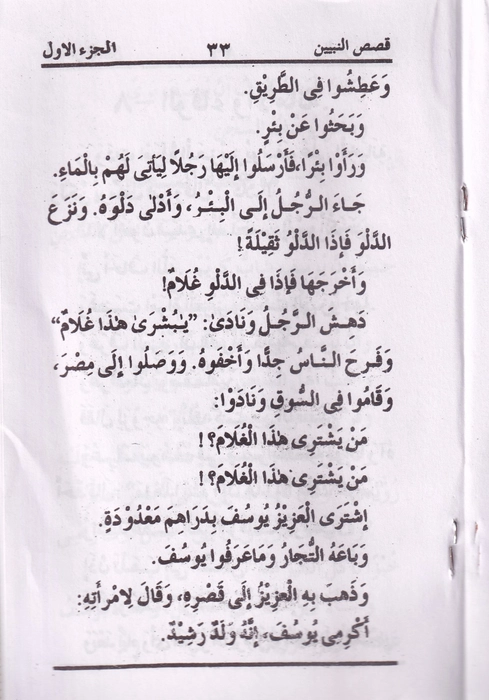 قصص النبيين ٣٣ الجزء الاول
وَعَطِشُوا فِى الطَّرِيْقِ.
وَبَحَثُوا عَنْ بِئْرٍ.
وَرَأَوْا بِئْرًا، فَأَرْسَلُوا إِلَيْهَا رَجُلاً لِيَأْتِىَ لَهُمْ بِالْمَاءِ.
جَاءَ الرَّجُلُ إِلَى الْبِئْرِ، وَأَدْلٰى دَلْوَهُ. وَنَزَعَ
الدَّلْوَ فَإِذَا الدَّلْوُ ثَقِيْلَةٌ!
وَأَخْرَجَهَا فَإِذَا فِى الدَّلْوِ غُلَامٌ!
دَهِشَ الرَّجُلُ وَنَادَىٰ: ”يٰبُشْرَىٰ هٰذَا غُلَامٌ“
وَفَرِحَ النَّاسُ جِدًّا وَأَخْفَوْهُ. وَوَصَلُوا إِلَى مِصْرَ،
وَقَامُوا فِى السُّوقِ وَنَادَوْا:
مَنْ يَشْتَرِىْ هٰذَا الْغُلَامَ؟!
مَنْ يَشْتَرِىْ هٰذَا الْغُلَامَ؟!
إِشْتَرَى الْعَزِيْزُ يُوسُفَ بِدَرَاهِمَ مَعْدُوْدَةٍ.
وَبَاعَهُ التُّجَّارُ وَمَاعَرَفُوا يُوسُفَ.
وَذَهَبَ بِهِ الْعَزِيْزُ إِلَى قَصْرِهِ، وَقَالَ لِامْرَأَتِهِ:
أَكْرِمِى يُوسُفَ، إِنَّهُ وَلَدٌ رَشِيْدٌ.